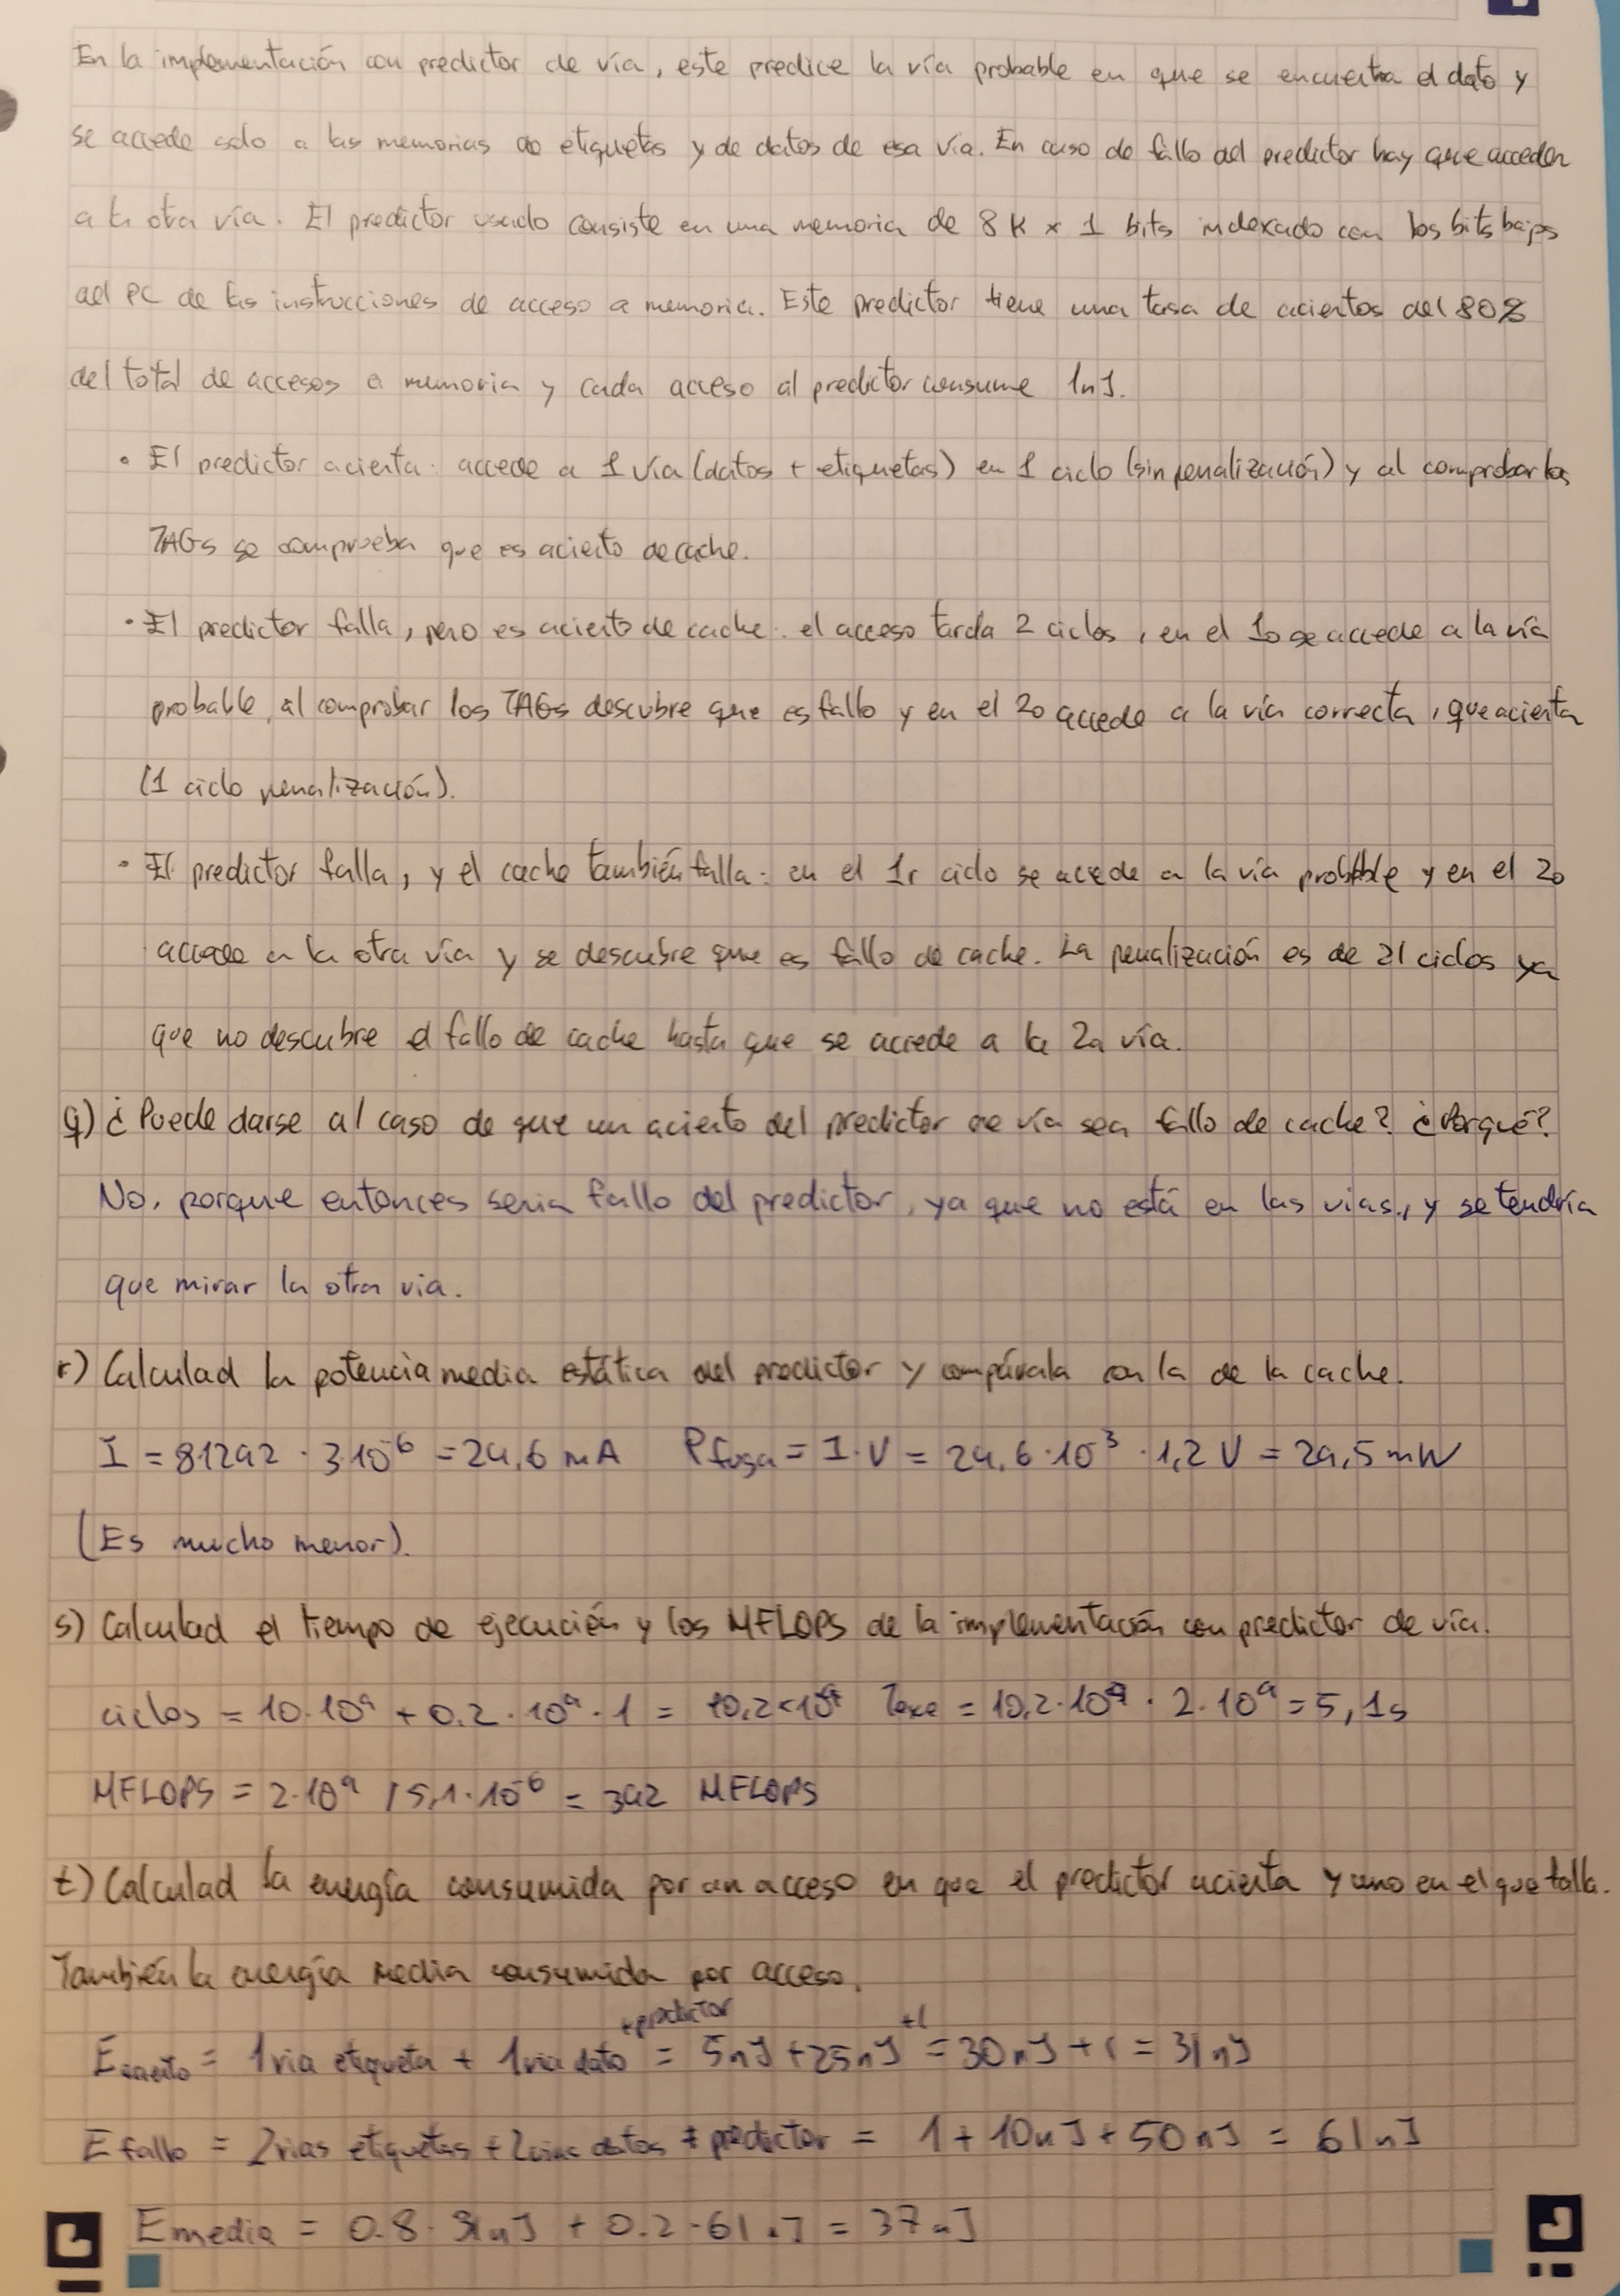 En la implementación con predictor de vía, este predice la vía probable en que se encuentra el dato y
se accede solo a las memorias de etiquetas y de datos de esa vía. En caso de fallo del predictor hay que acceder
a la otra vía. El predictor usado consiste en una memoria de 8 K x 1 bits indexado con los bits bajos
del PC de las instrucciones de acceso a memoria. Este predictor tiene una tasa de aciertos del 80%
del total de accesos a memoria y cada acceso al predictor consume 1nJ.
• El predictor acierta: accede a 1 vía (datos + etiquetas) en 1 ciclo (sin penalización) y al comprobar los
TAGs se comprueba que es acierto de cache.
• El predictor falla, pero es acierto de cache: el acceso tarda 2 ciclos, en el 1o se accede a la vía
probable, al comprobar los TAGs descubre que es fallo y en el 2o accede a la vía correcta, que acierta
(1 ciclo penalización).
• El predictor falla, y el cache también falla: en el 1r ciclo se accede a la vía probable y en el 2o
accede a la otra vía y se descubre que es fallo de cache. La penalización es de 21 ciclos ya
que no descubre el fallo de cache hasta que se accede a la 2a vía.
q) ¿Puede darse al caso de que un acierto del predictor de vía sea fallo de cache? ¿Porqué?
No, porque entonces seria fallo del predictor, ya que no está en las vias, y se tendría
que mirar la otra via.
r) Calculad la potencia media estática del predictor y compárala con la de la cache.
I = 8·1292 · 3·10^-6 = 24,6 mA Pfuga = I·V = 24,6·10^3 · 1,2 V = 29,5 mW
(Es mucho menor).
s) Calculad el tiempo de ejecución y los MFLOPS de la implementación con predictor de vía.
ciclos = 10·10^9 + 0.2·10^9·1 = 10,2×10^9 Texe = 10,2·10^9 · 2·10^9 = 5,1s
MFLOPS = 2·10^9 / 5,1·10^-6 = 392 MFLOPS
t) Calculad la energía consumida por un acceso en que el predictor acierta y uno en el que falla.
También la energía media consumida por acceso.
+predictor +1
Eacierto = 1 via etiqueta + 1 via dato = 5nJ + 25nJ = 30nJ + 1 = 31nJ
Efallo = 2 vias etiquetas + 2 vias datos + predictor = 1 + 10nJ + 50nJ = 61nJ
Emedia = 0.8 · 31nJ + 0.2 · 61nJ = 37nJ